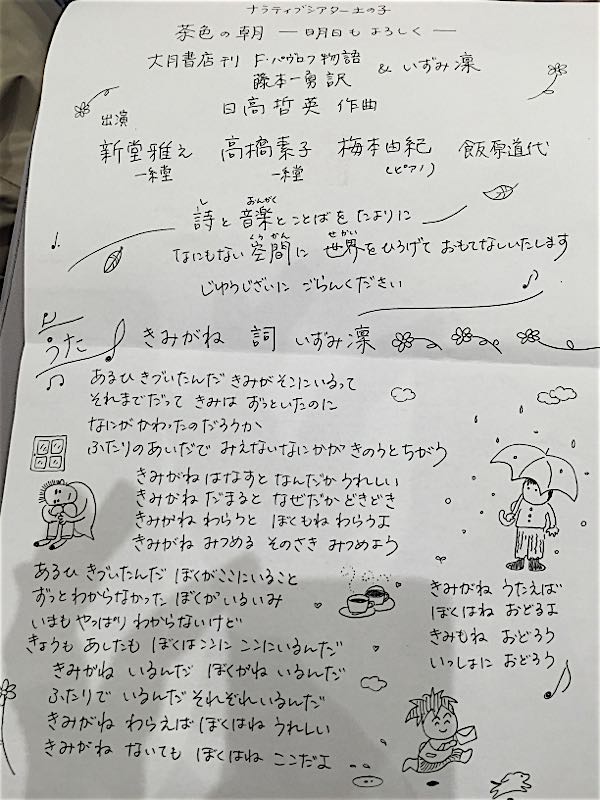 ナラティブシアター土の子
茶色の朝 ―明日もよろしく―
大月書店刊 F・パヴロフ物語
藤本一勇訳 & いずみ凛
日高哲英 作曲
出演
新堂雅之 高橋素子 梅本由紀 飯原道代
一緑堂 一緑堂 (ピアノ)
詩と音楽とことばをたよりに
なにもない空間に世界をひろげておもてなしいたします
じゆうじざいに ごらんください
うた きみがね 詞 いずみ凛
あるひ きづいたんだ きみがそこにいるって
それまでだって きみは ずっといたのに
なにが かわったのだろうか
ふたりのあいだで みえないなにかが きのうとちがう
きみがね はなすと なんだか うれしい
きみがね だまると なぜだか どきどき
きみがね わらうと ぼくもね わらうよ
きみがね みつめる そのさき みつめよう
あるひ きづいたんだ ぼくがここにいること
ずっとわからなかった ぼくがいるいみ
いまも やっぱり わからないけど
きょうも あしたも ぼくはここに ここにいるんだ
きみがね いるんだ ぼくがね いるんだ
ふたりで いるんだ それぞれいるんだ
きみがね わらえば ぼくはね うれしい
きみがね ないても ぼくはね ここだよ
きみがね うたえば
ぼくはね おどるよ
きみもね おどろう
いっしょに おどろう